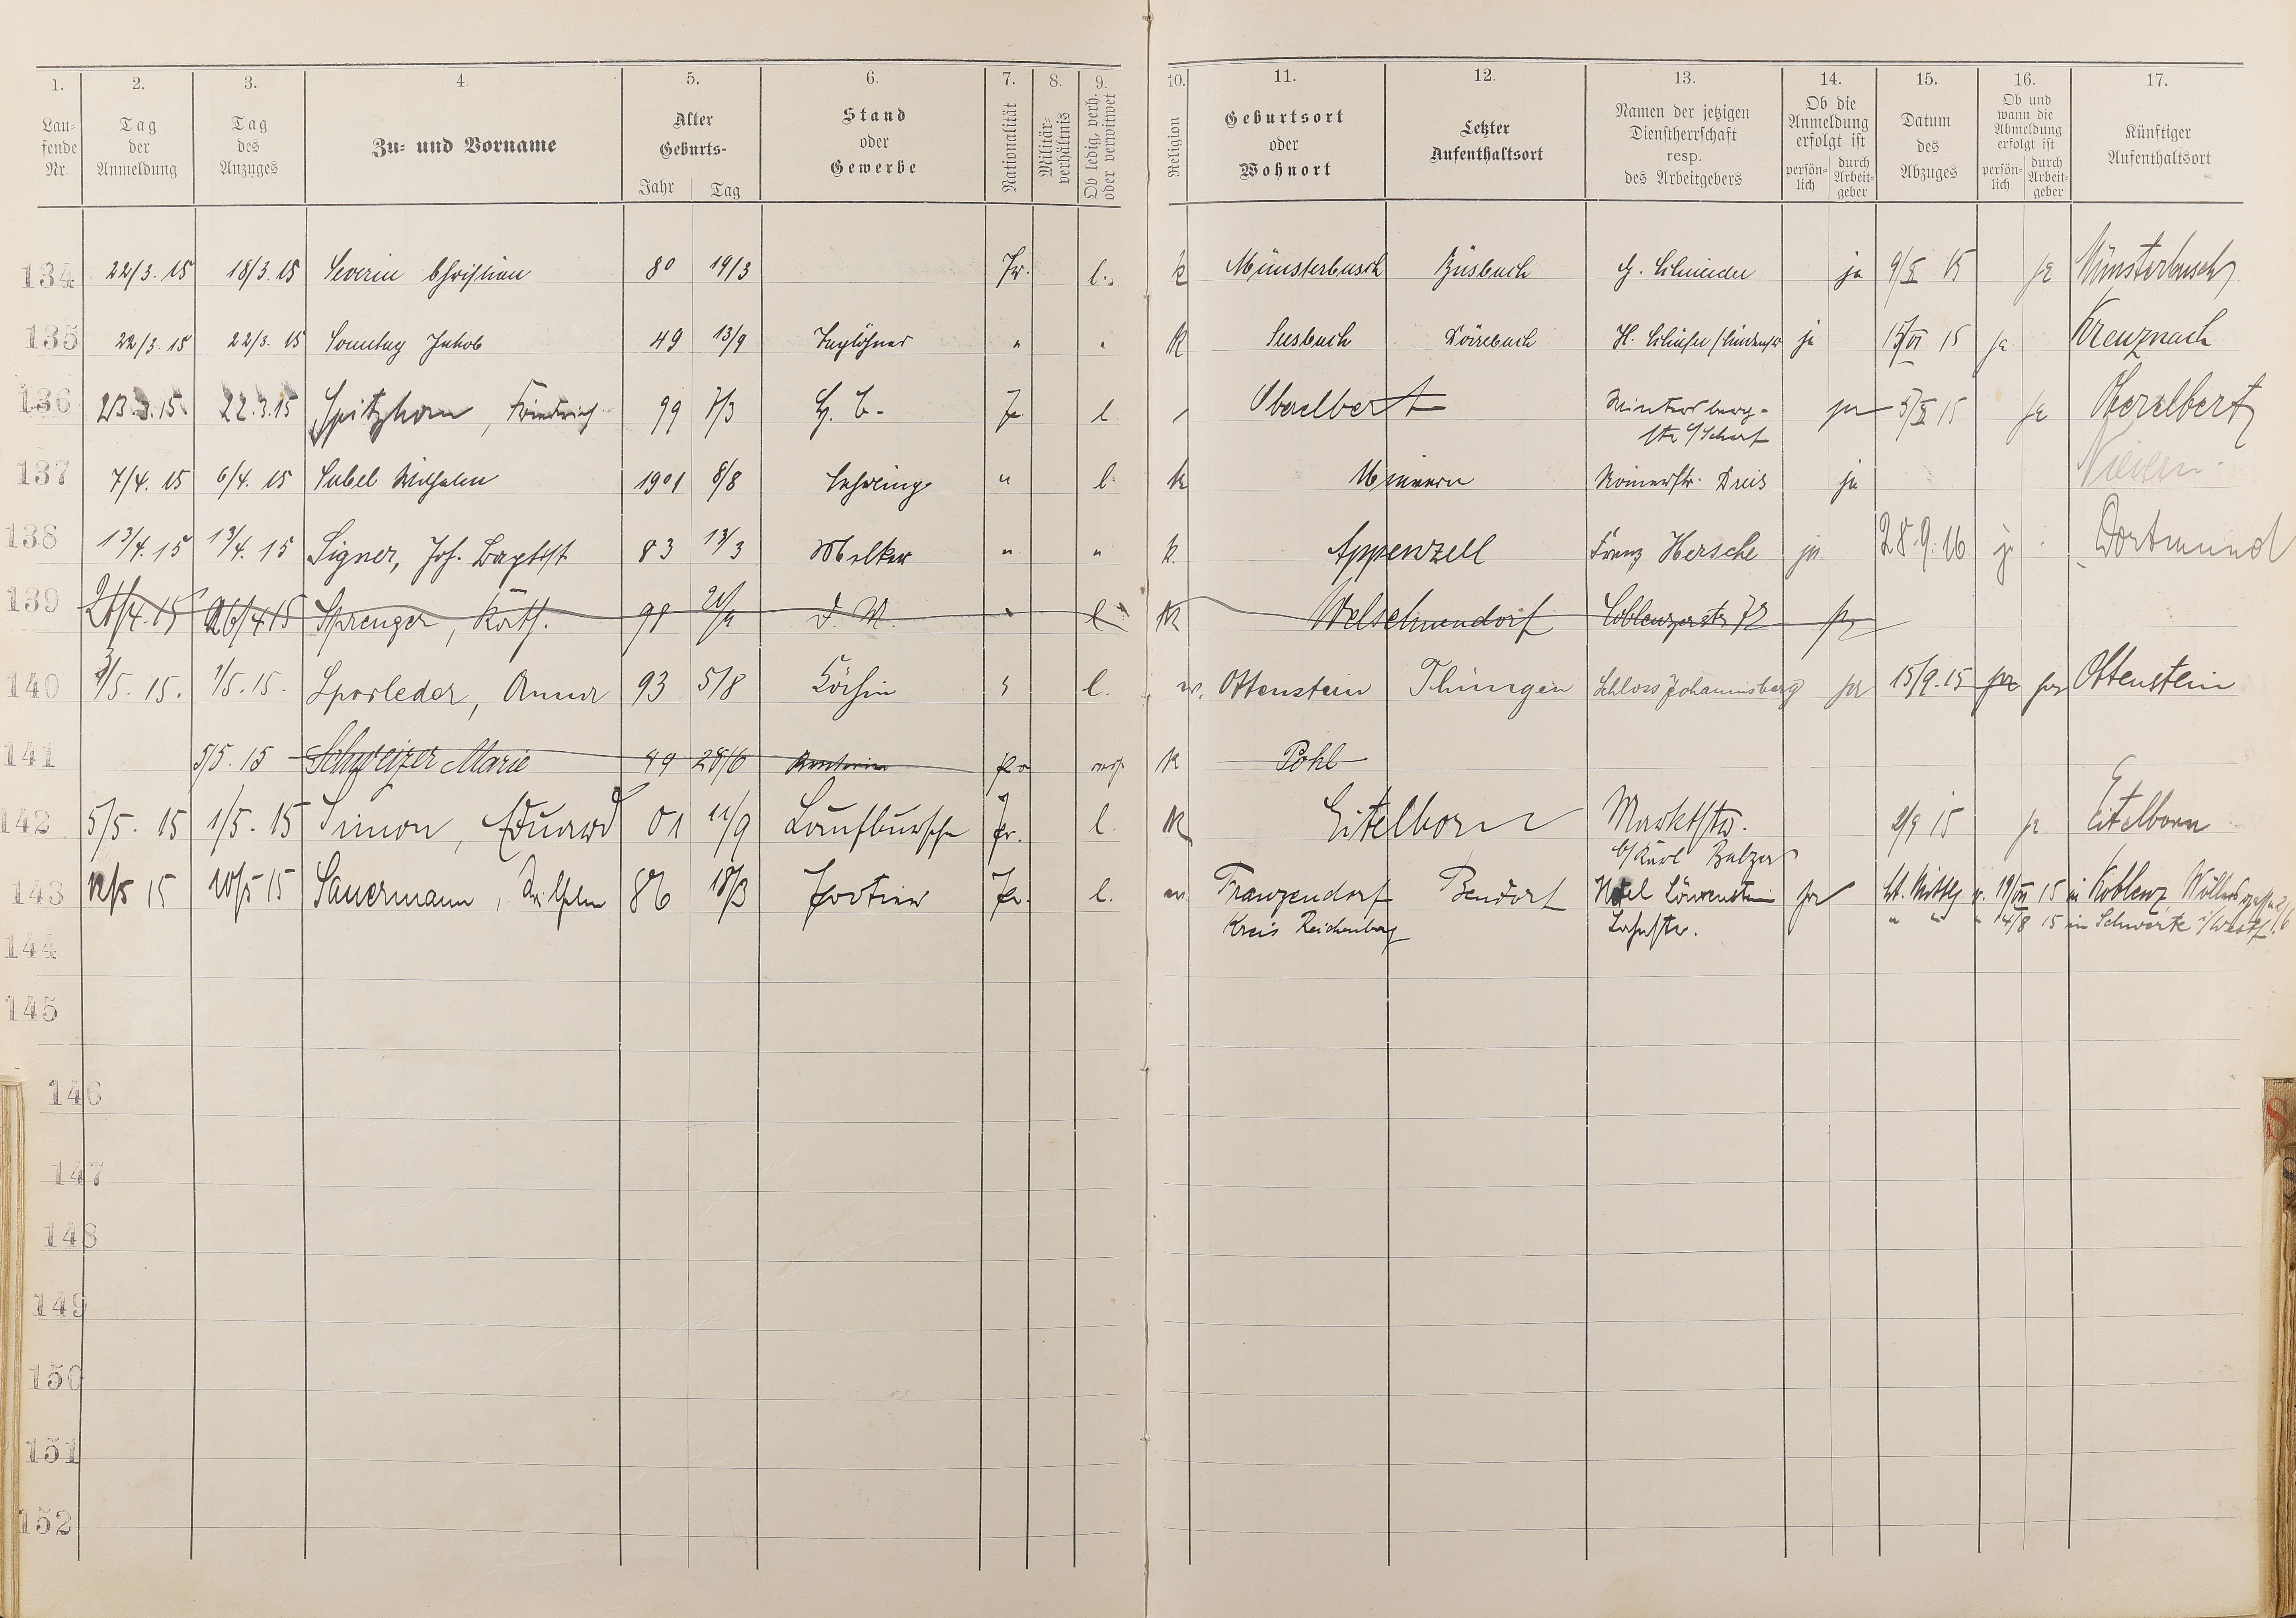 1. 2. 3. 4. 5. 6. 7. 8. 9. 10. 11. 12. 13. 14. 15. 16. 17.
Lau-
fende
Nr.
Tag
der
Anmeldung
Tag
des
Anzuges
Zu- und Vorname
Alter
Geburts-
Jahr Tag
Stand
oder
Gewerbe
Nationalität
Militär-
verhältnis
Ob ledig, verh.
oder verwitwet
Religion
Geburtsort
oder
Wohnort
Letzter
Aufenthaltsort
Namen der jetzigen
Dienstherrschaft
resp.
des Arbeitgebers
Ob die
Anmeldung
erfolgt ist
persön-
lich
durch
Arbeit-
geber
Datum
des
Abzuges
Ob und
wann die
Abmeldung
erfolgt ist
persön-
lich
durch
Arbeit-
geber
Künftiger
Aufenthaltsort
134 22/3. 15 18/3. 15 Severin Christian 80 19/3 Pr. l. k Münsterbusch Büsbach ja 9/X 15 ja Münsterbusch
135 22/3. 15 22/3. 15 Sonntag Jakob 49 13/9 Taglöhner " " k Seesbach Dörrebach ja 15 ja Kreuznach
136 23.3.15. 22.3.15 Spitzhorn, Friedrich 99 7/3 l Oberelbert Wintersberg-
str ja 15 ja Oberelbert
137 7/4. 15 6/4. 15 Sabel Wilhelm 1901 8/8 Lehrling " l. k Römerstr. Dreis ja Nievern.
138 13/4. 15 13/4. 15 Signer, Joh. Baptist 83 13/3 Melker " " k. Appenzell Franz Hersche ja 28.9.16 ja Dortmund
139 26/4 15 Sprenger, Käth. 98 D. M. " l. k Welschneudorf Coblenzerstr 72 ja
140 3/5. 15. 1/5. 15. Sporleder, Anna 93 5/8 Köchin l. Ottenstein Thüringen Schloss Johannisberg ja 15/9. 15 ja ja Ottenstein
141 5/5. 15 Schweizer Marie 49 28/6 Rentnerin Pr k Pohl
142 5/5. 15 1/5. 15 Simon, Eduard 01 11/9 Laufbursche Pr. l. k Eitelborn Marktstr.
b/ Karl Balzer 2/9 15 ja Eitelborn
143 12/5 15 10/5 15 Sauermann, Wilhelm 86 18/3 Portier Pr. l. Franzendorf
Kreis Reichenberg Bendorf Hotel Löwenstein
Bahnstr. ja lt. Mittlg v. 19/VII 15 in Koblenz
" " " 14/8 15 in Schwerte i/Westf.
144
145
146
147
148
149
150
151
152
S